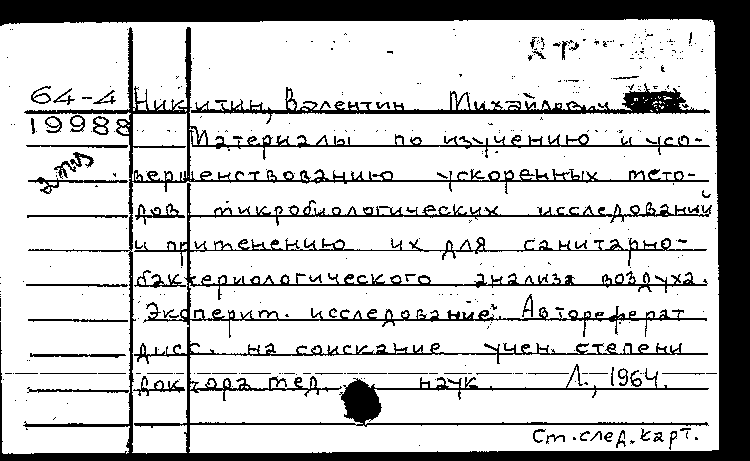 64-4 Никитин, Валентин Михайлович
19988 Материалы по изучению и усо-
2 экз вершенствованию ускоренных мето-
дов микробиологических исследований
и применению их для санитарно-
бактериологического анализа воздуха.
Эксперит. исследование. Автореферат
дисс. на соискание учен. степени
доктора мед. наук. Л., 1964.
Ст. след. карт.